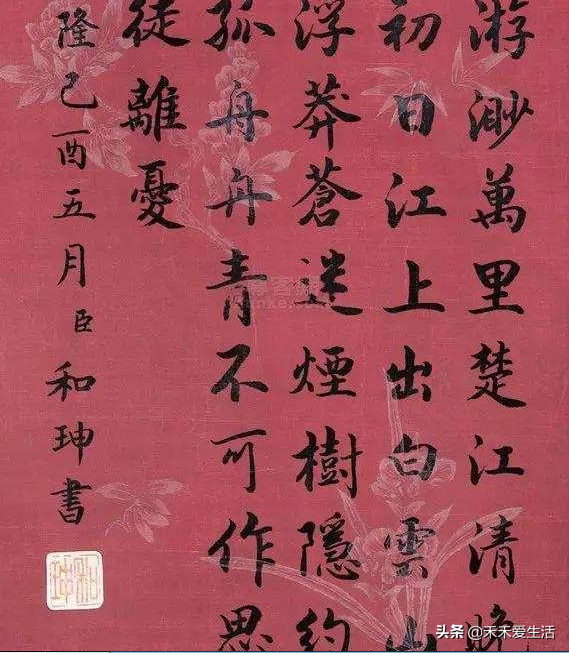 游渺萬里楚江清將
初日江上出白雲山
浮莽蒼迷煙樹隱約
孤舟舟青不可作思
徒離憂
隆己酉五月臣和珅書
头条 @禾禾爱生活